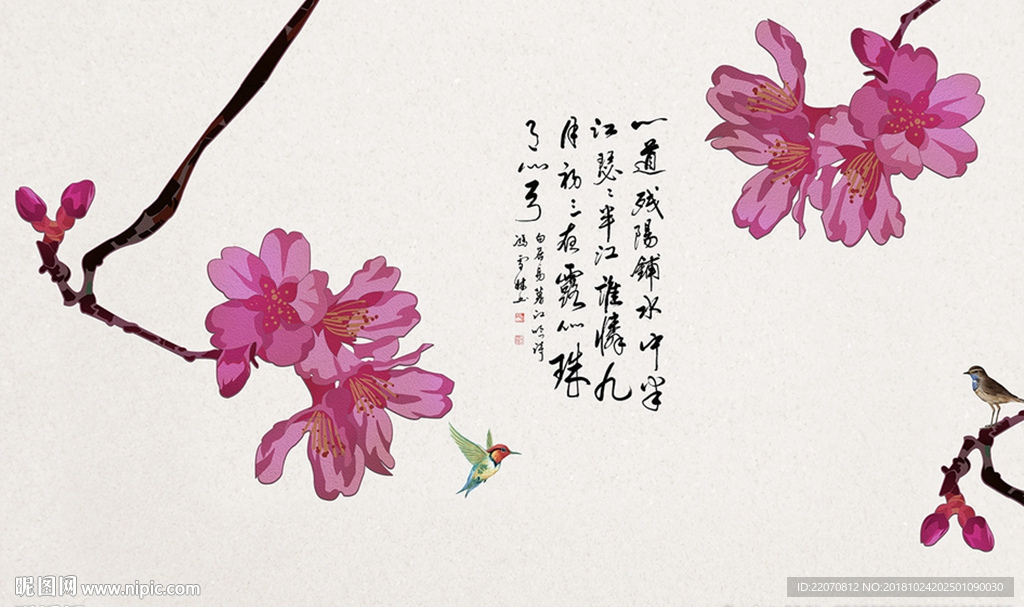 一道残陽鋪水中半
江瑟〻半江誰憐九
月初三夜露似珠
似弓
白居易暮江吟詩
馮雪
昵图网 www.nipic.com
ID:22070812 NO:20181024202501090030